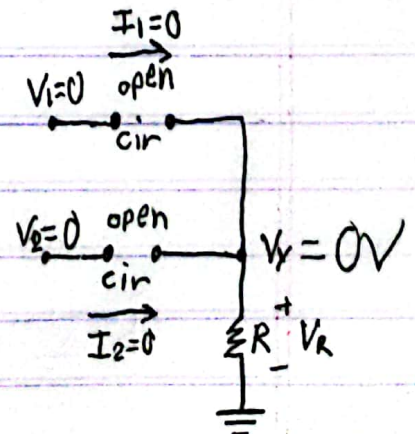 I₁=0
V₁=0 open
cir
V₂=0 open
cir
I₂=0
Vy=0V
R + V_R -